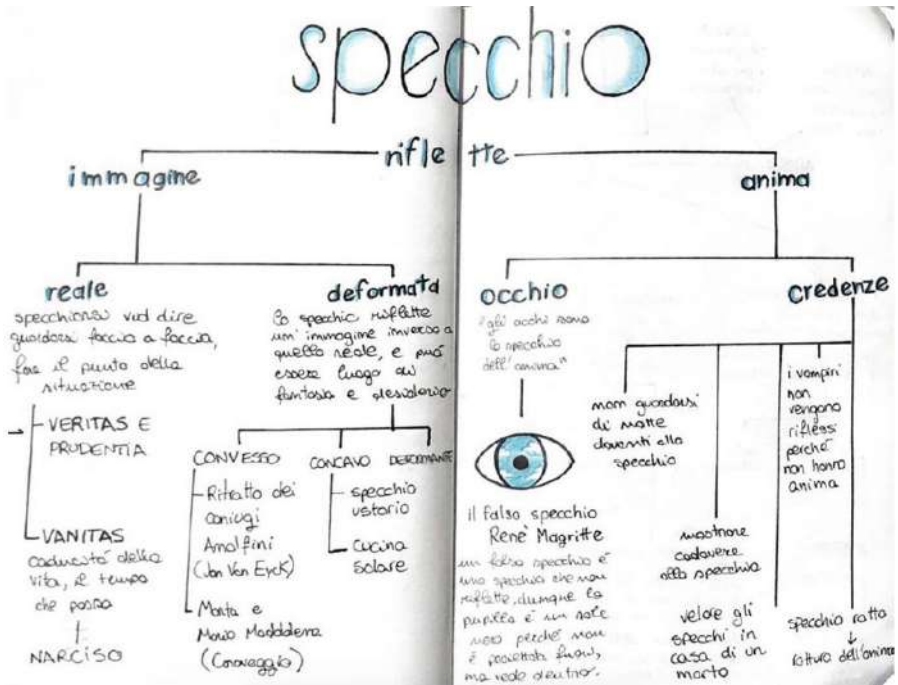 specchio
riflette
immagine
anima
reale
specchiarsi vuol dire
guardarsi faccia a faccia,
fare il punto della
situazione
VERITAS E
PRUDENTIA
VANITAS
caducità della
vita, il tempo
che passa
NARCISO
deformata
lo specchio riflette
un'immagine inversa a
quella reale, e può
essere luogo di
fantasia e desiderio
CONVESSO
Ritratto dei
coniugi
Arnolfini
(Jan Van Eyck)
Marta e
Maria Maddalena
(Caravaggio)
CONCAVO
specchio
ustorio
cucina
solare
DEFORMANTE
occhio
"gli occhi sono
lo specchio
dell'anima"
il falso specchio
Renè Magritte
un falso specchio è
uno specchio che non
riflette, dunque la
pupilla è un sole
nero perché non
è proiettata fuori,
ma vede dentro.
credenze
non guardarsi
di notte
davanti allo
specchio
mostrare
cadavere
allo specchio
velare gli
specchi in
casa di un
morto
i vampiri
non
vengono
riflessi
perché
non hanno
anima
specchio rotto
rottura dell'anima